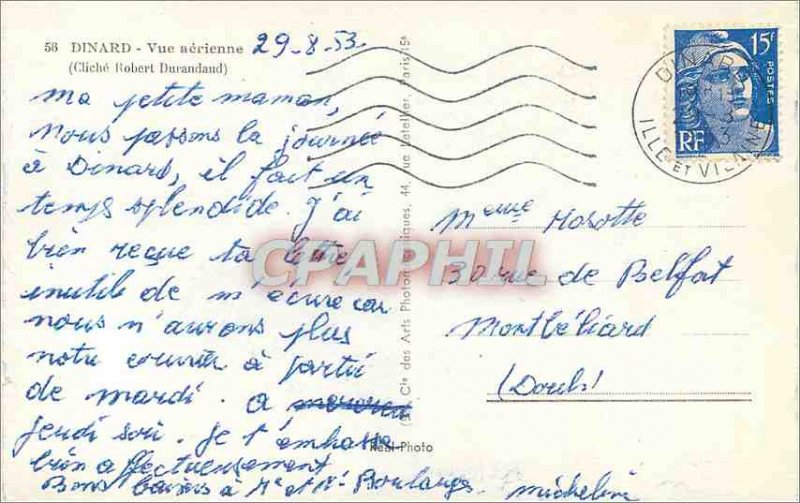 56 DINARD - Vue aérienne 29-8-53
(Cliché Robert Durandaud)
Ma petite maman,
Nous passons la journée
à Dinard, il fait un
temps splendide. J'ai
bien reçue ta lettre
inutile de m'écrire car
nous n'aurons plus
notre courrier à partir
de mardi. A
jeudi soir. Je t'embrasse
bien affectueusement
Bons baisers à Mr et Me Boulanger. Micheline
Cie des Arts Photomécaniques, 44, rue Letellier, Paris-15e
Real-Photo
CPAPHIL
15f
POSTES
RF
DINARD
ILLE ET VILAINE
Meme Mosotte
30 rue de Belfort
Montbéliard
(Doubs)